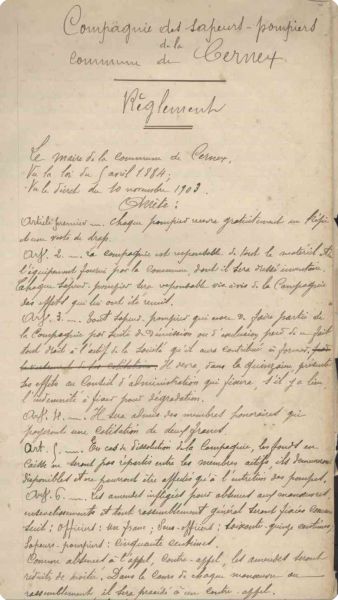 Compagnie des sapeurs-pompiers
de la
Commune de Cernex
Règlement
Le Maire de la commune de Cernex,
Vu la loi du 5 avril 1884;
Vu le décret du 10 novembre 1903.
Arrête:
Article premier _ . Chaque pompier reçoit gratuitement un Képi
et une veste de drap.
Art. 2. _ . La compagnie est responsable de tout le matériel et de
l'équipement fourni par la commune, dont il sera dressé inventaire
Chaque sapeur-pompier sera responsable vis-à-vis de la Compagnie
des effets qui lui ont été remis.
Art. 3. _ . Tout sapeur-pompier qui cesse de faire partie de
la Compagnie par suite de démission ou d'exclusion perd de ce fait
tout droit à l'actif de la société qu'il aura contribué à former,
Il devra, dans la quinzaine, présenter
ses effets au Conseil d'administration qui fixera, s'il y a lieu,
l'indemnité à payer pour dégradation.
Art. 4. _ . Il sera admis des membres honoraires qui
payeront une cotisation de deux francs.
Art. 5 _ . En cas de dissolution de la Compagnie, les fonds en
caisse ne seront pas répartis entre les membres actifs, ils demeureront
disponibles et ne pourront être affectés qu'à l'entretien des pompes.
Art. 6. _ . Les amendes infligées pour absences aux manœuvres,
et tout rassemblement général seront fixées comme
suit: officiers: un franc; sous-officiers: soixante-quinze centimes;
sapeurs-pompiers: cinquante centimes.
Comme absences à l'appel, contre-appel, les amendes seront
réduites de moitié. Dans le cours de chaque manœuvre ou
rassemblement il sera procédé à un contre-appel.